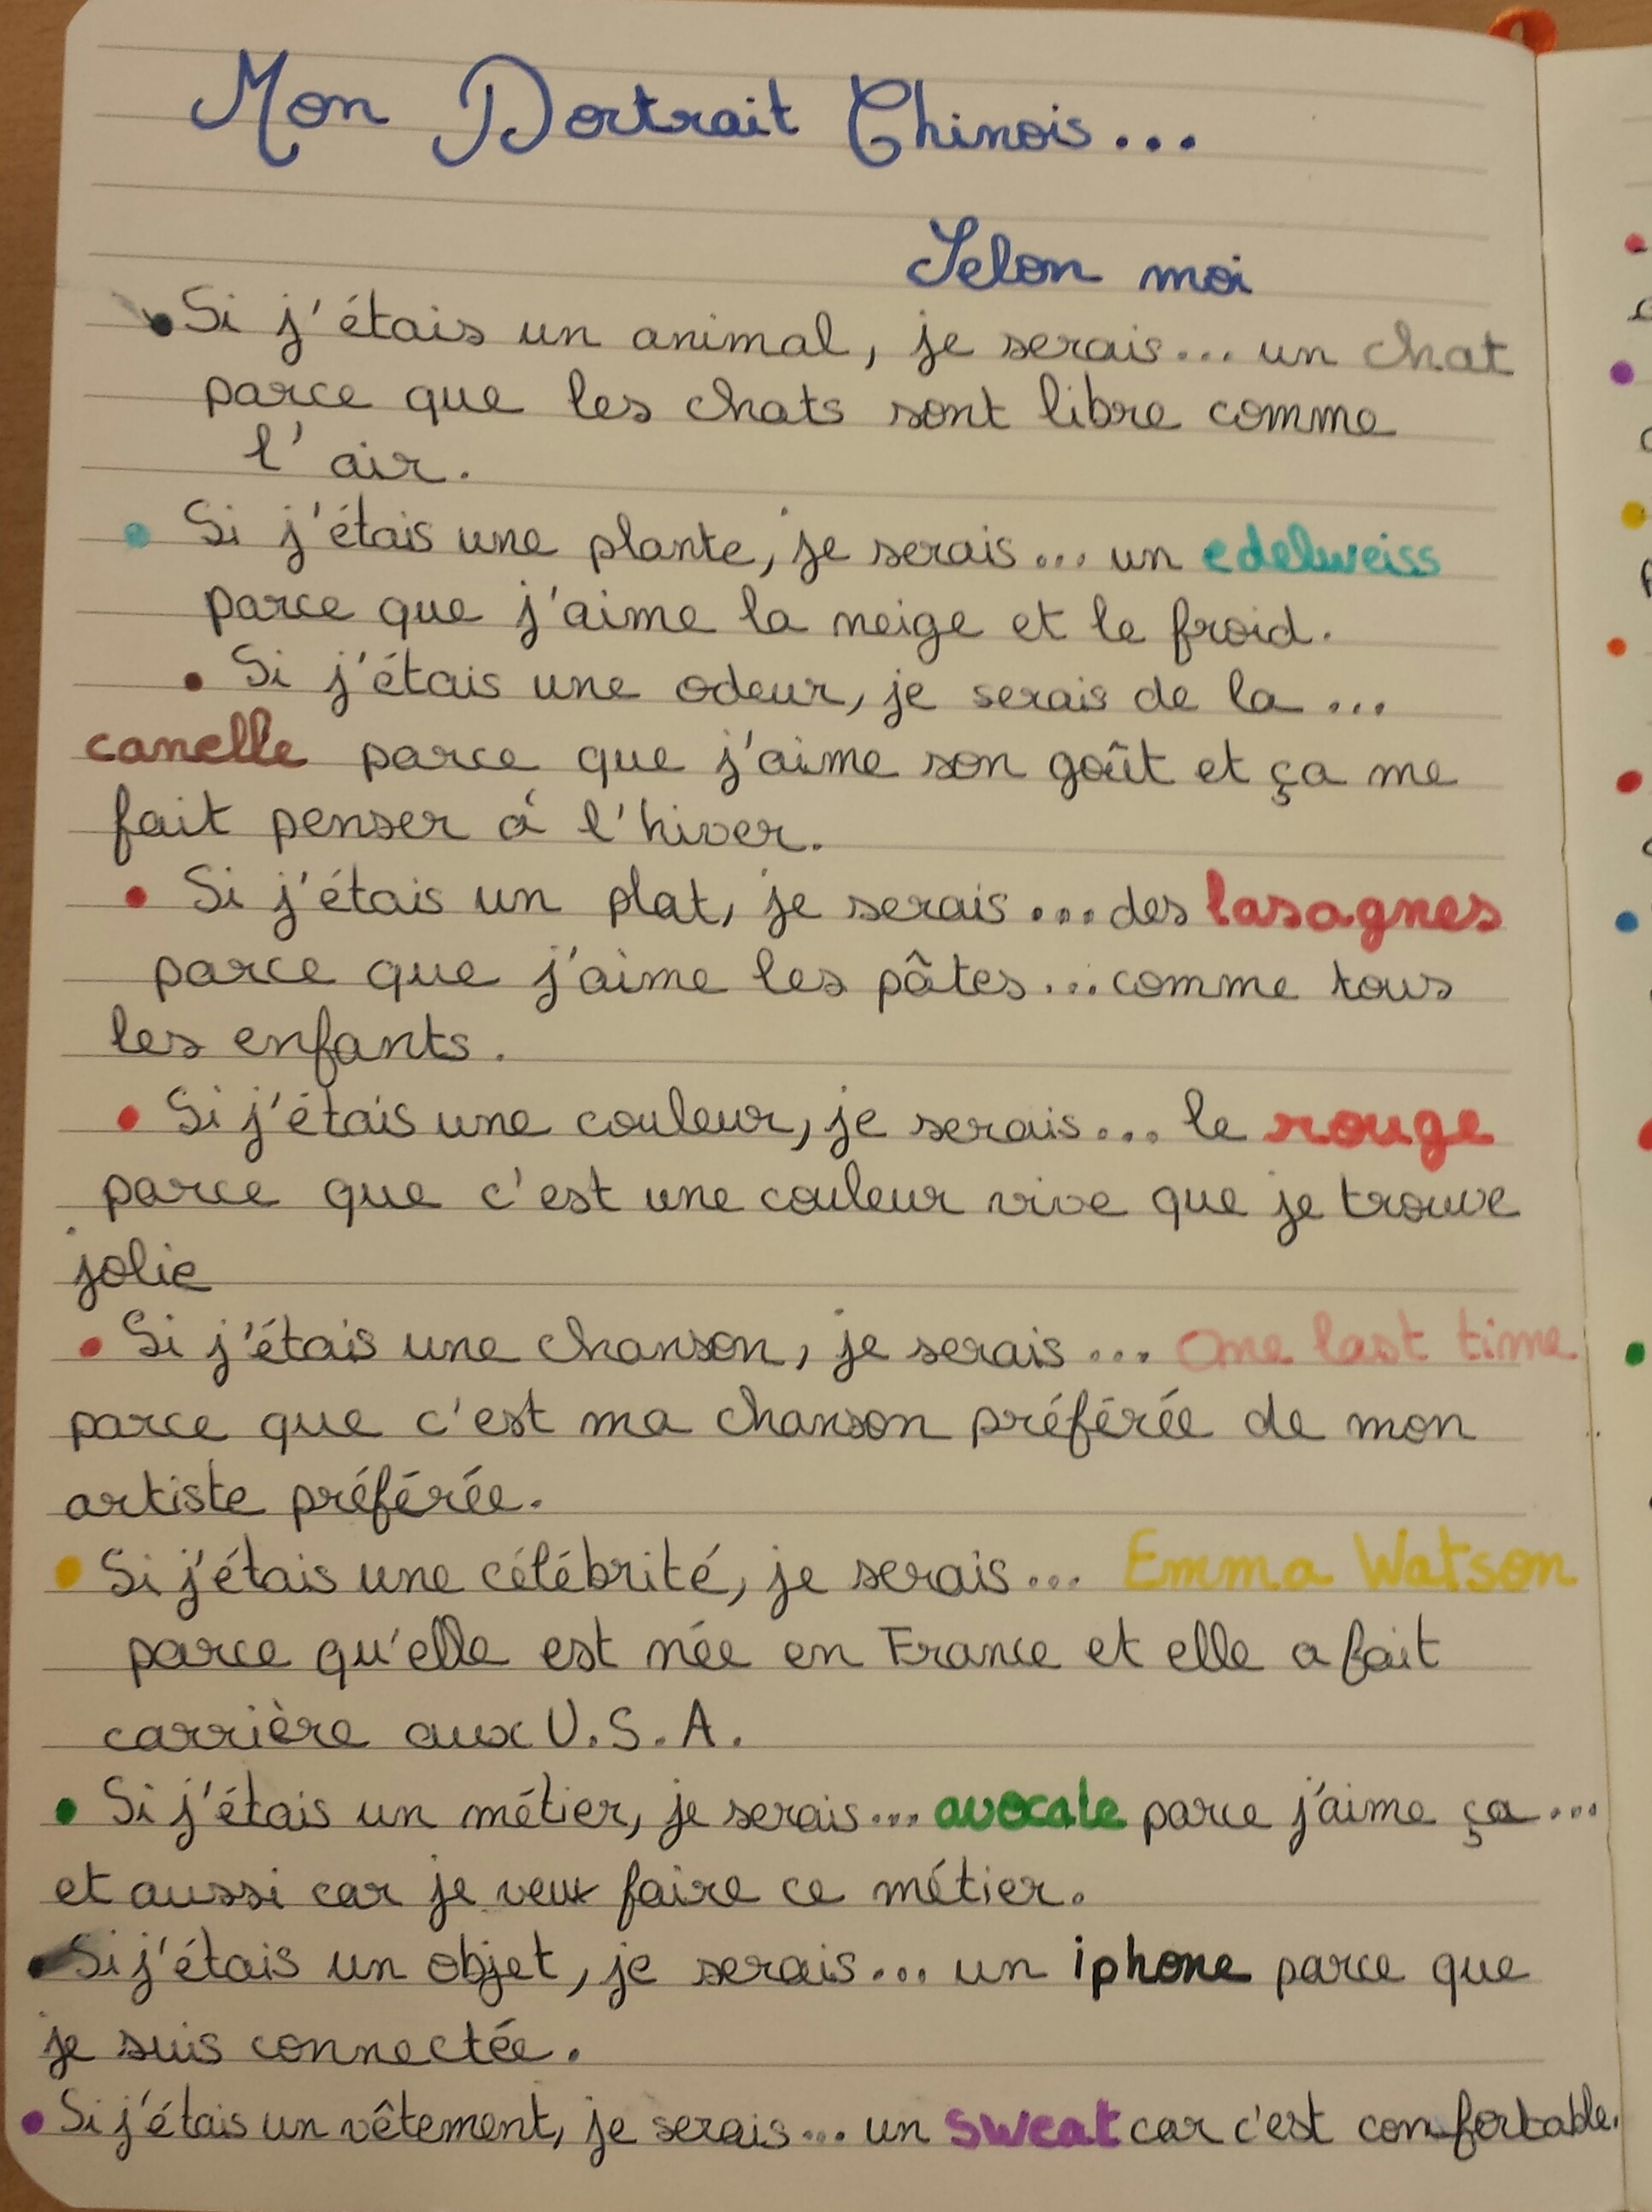 Mon Portrait Chinois...
Selon moi
• Si j'étais un animal, je serais... un chat
parce que les chats sont libre comme
l'air.
• Si j'étais une plante, je serais... un edelweiss
parce que j'aime la neige et le froid.
• Si j'étais une odeur, je serais de la...
canelle parce que j'aime son goût et ça me
fait penser à l'hiver.
• Si j'étais un plat, je serais... des lasagnes
parce que j'aime les pâtes... comme tous
les enfants.
• Si j'étais une couleur, je serais... le rouge
parce que c'est une couleur vive que je trouve
jolie
• Si j'étais une chanson, je serais... One last time
parce que c'est ma chanson préférée de mon
artiste préférée.
• Si j'étais une célébrité, je serais... Emma Watson
parce qu'elle est née en France et elle a fait
carrière aux U.S.A.
• Si j'étais un métier, je serais... avocate parce j'aime ça...
et aussi car je veux faire ce métier.
• Si j'étais un objet, je serais... un iphone parce que
je suis connectée.
• Si j'étais un vêtement, je serais... un sweat car c'est comfortable.